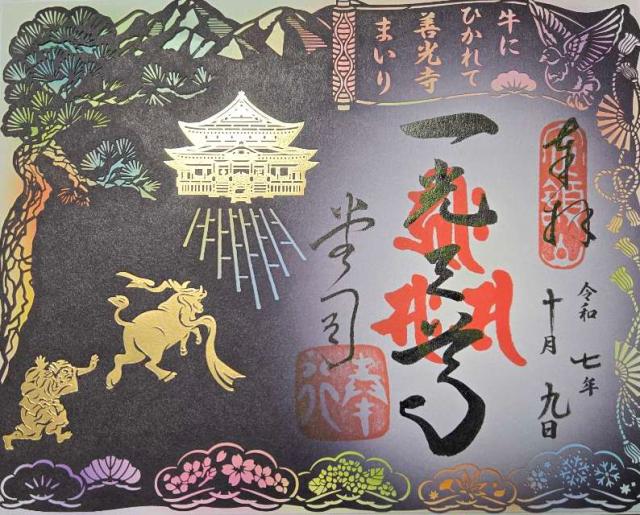 牛に
ひかれて
善光寺
まいり
奉拝
令和七年
十月九日
一光三尊
堂司